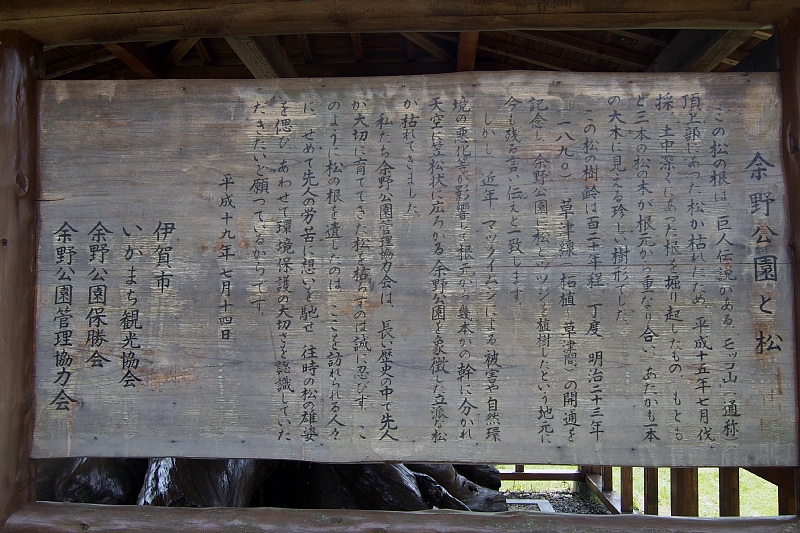 余野公園と松
この松の根は、巨人伝説がある、モッコ山（通称）
頂上部にあった松が枯れたため、平成十五年七月伐
採、土中深くにあった根を掘り起したもの。もとも
と三本の松の木が根元から重なり合い、あたかも一本
の大木に見える珍しい樹形でした。
この松の樹齢は百二十年程、丁度、明治二十三年
（一八九〇）草津線（柘植－草津間）の開通を
記念し、余野公園に松とツツジを植樹したという地元に
今も残る言い伝えと一致します。
しかし、近年、マツクイムシによる被害や自然環
境の悪化等が影響して、根元から幾本かの幹に分かれ
天空に笠松状に広がる余野公園を象徴した立派な松
が枯れてきました。
私たち余野公園管理協力会は、長い歴史の中で先人
が大切に育ててきた松を枯らすのは誠に忍びず、こ
のように松の根を遺したのは、ここを訪れられる人々
に、せめて先人の労苦に想いを馳せ、往時の松の雄姿
を偲び、あわせて環境保護の大切さを認識していた
だきたいと願っているからです。
平成十九年七月十四日
伊賀市
いがまち観光協会
余野公園保勝会
余野公園管理協力会